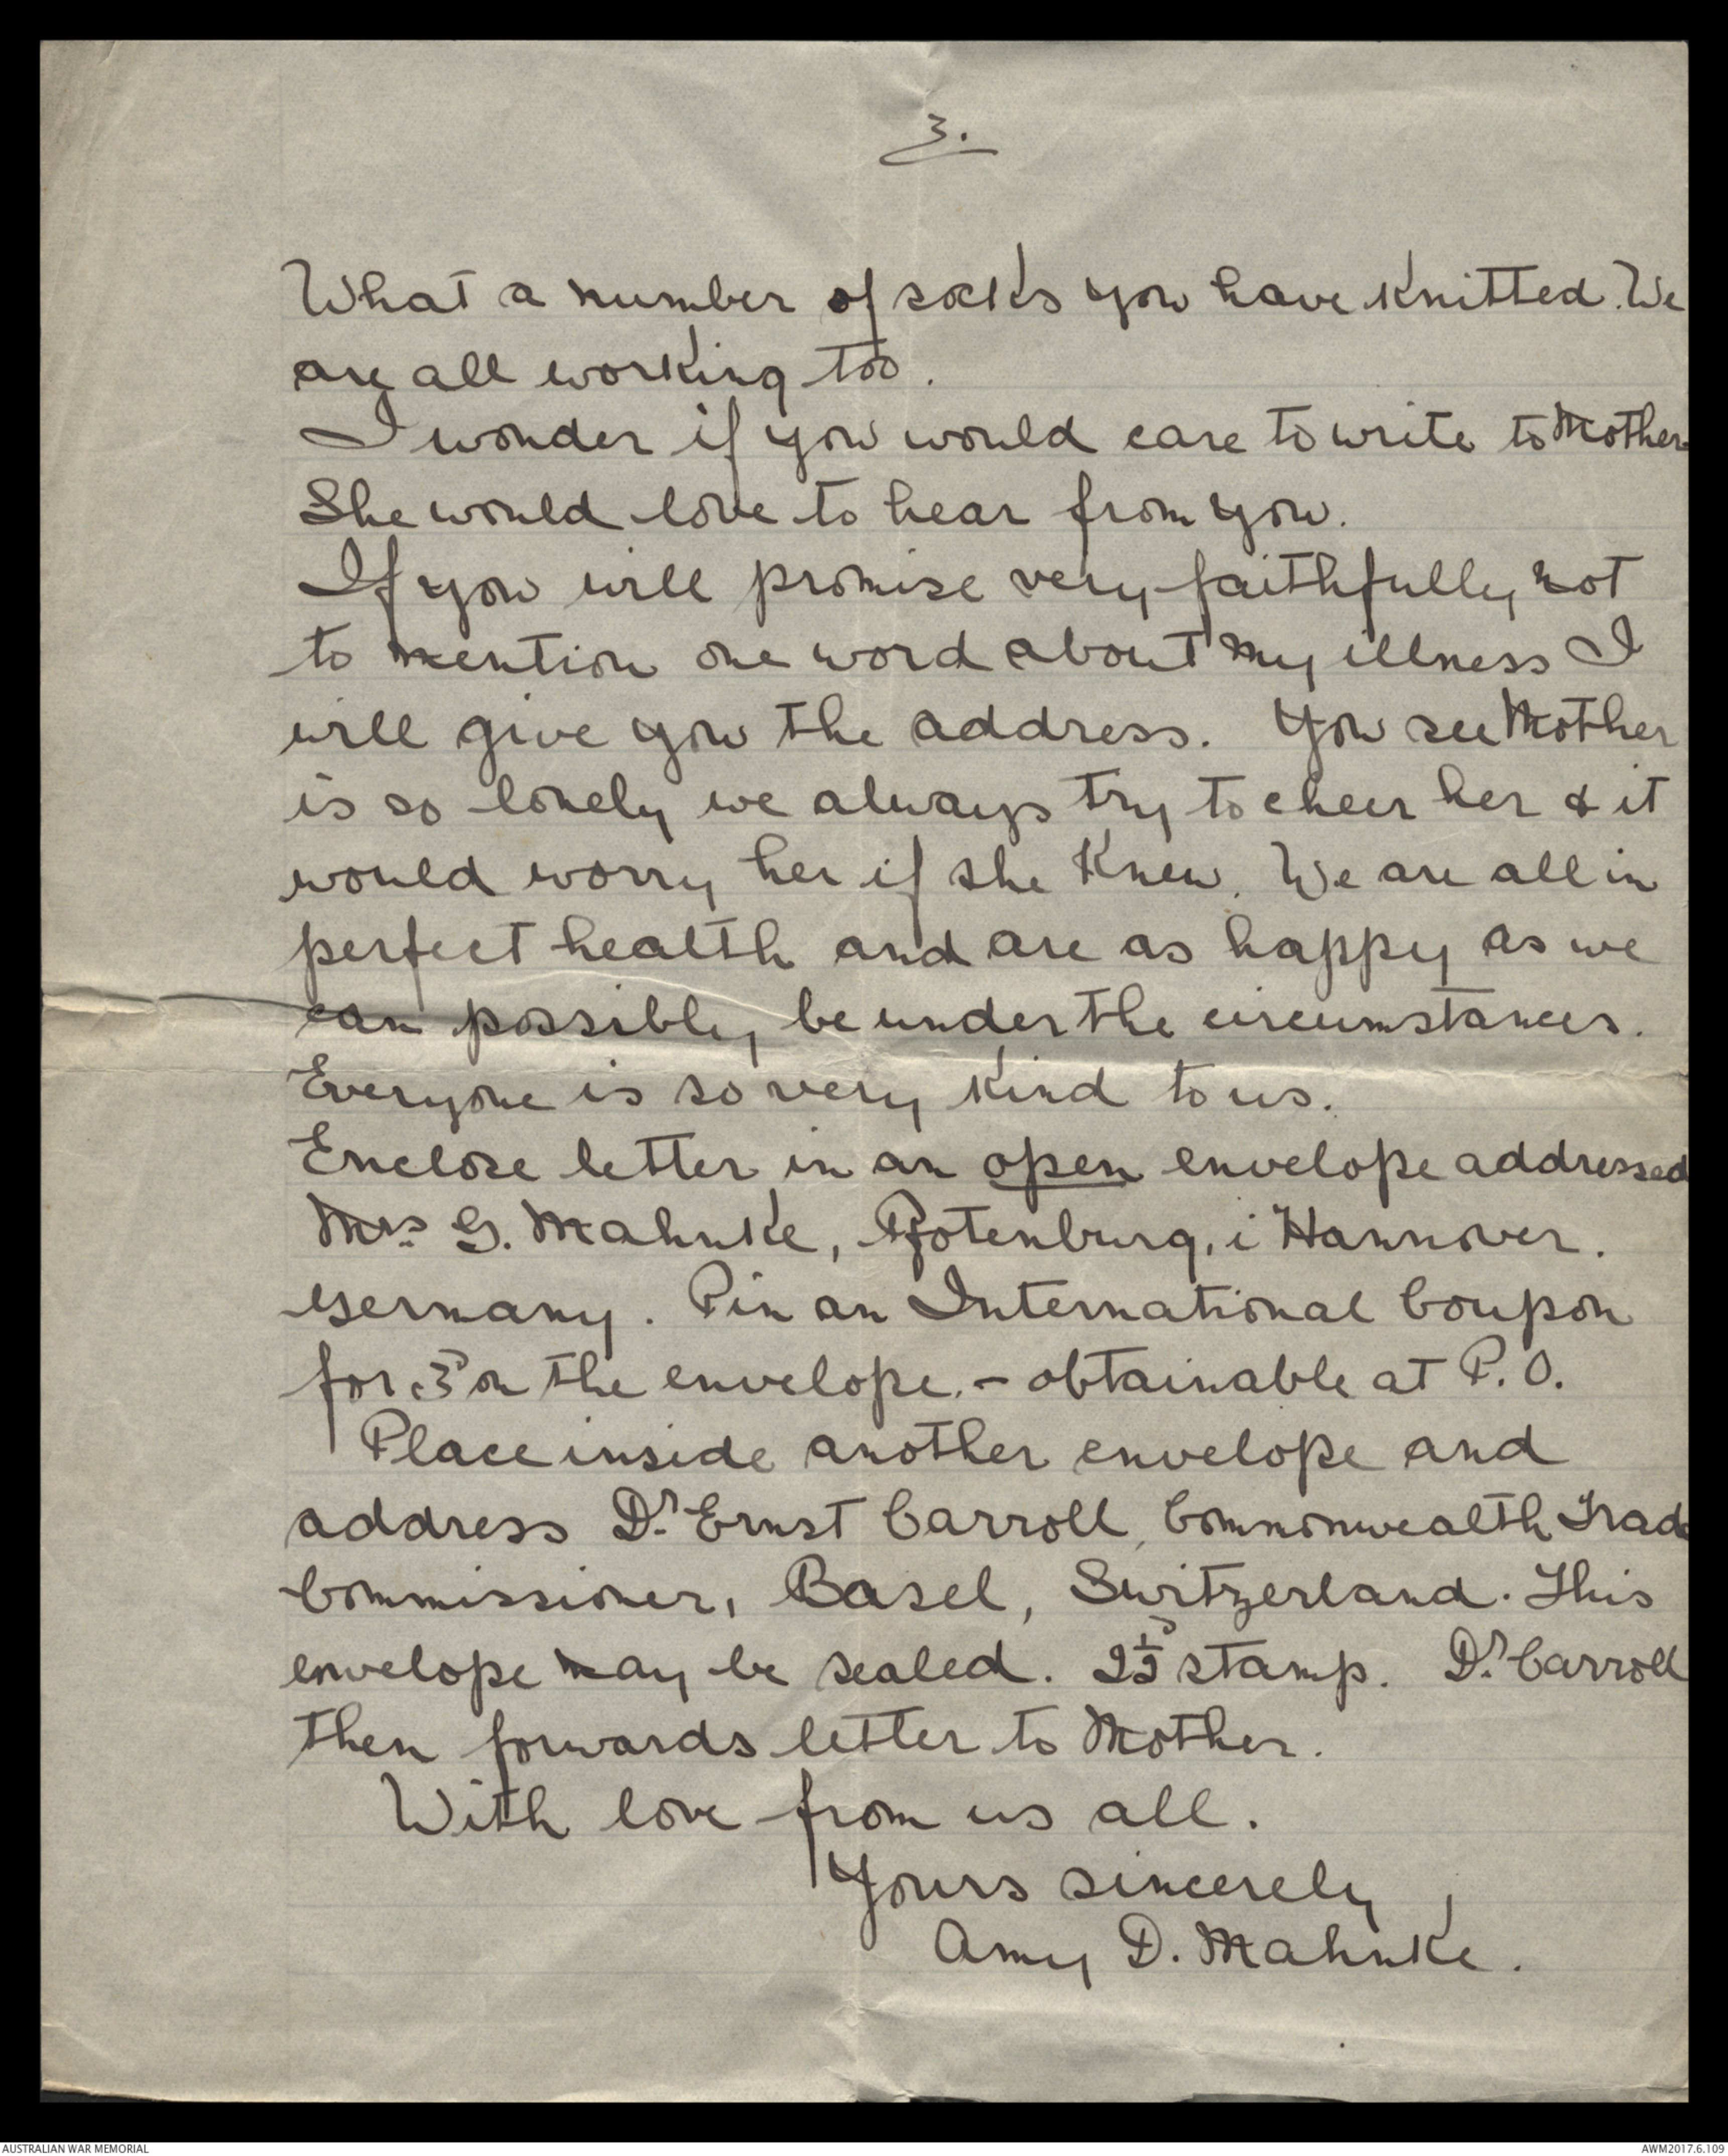 3.
What a number of socks you have knitted. We
are all working too.
I wonder if you would care to write to Mother
She would love to hear from you.
If you will promise very faithfully not
to mention one word about my illness I
will give you the address. You see Mother
is so lonely we always try to cheer her & it
would worry her if she knew. We are all in
perfect health and are as happy as we
can possibly be under the circumstances.
Everyone is so very kind to us.
Enclose letter in an open envelope addressed
Mrs. G. Mahnke, Rotenburg, i Hannover.
Germany. Pin an International Coupon
for 3d on the envelope. - obtainable at P. O.
Place inside another envelope and
address Dr. Ernst Carroll, Commonwealth Trade
Commissioner, Basel, Switzerland. This
envelope may be sealed. 2½d stamp. Dr. Carroll
then forwards letter to Mother.
With love from us all.
Yours sincerely
Amy D. Mahnke.
AUSTRALIAN WAR MEMORIAL
AWM2017.6.109